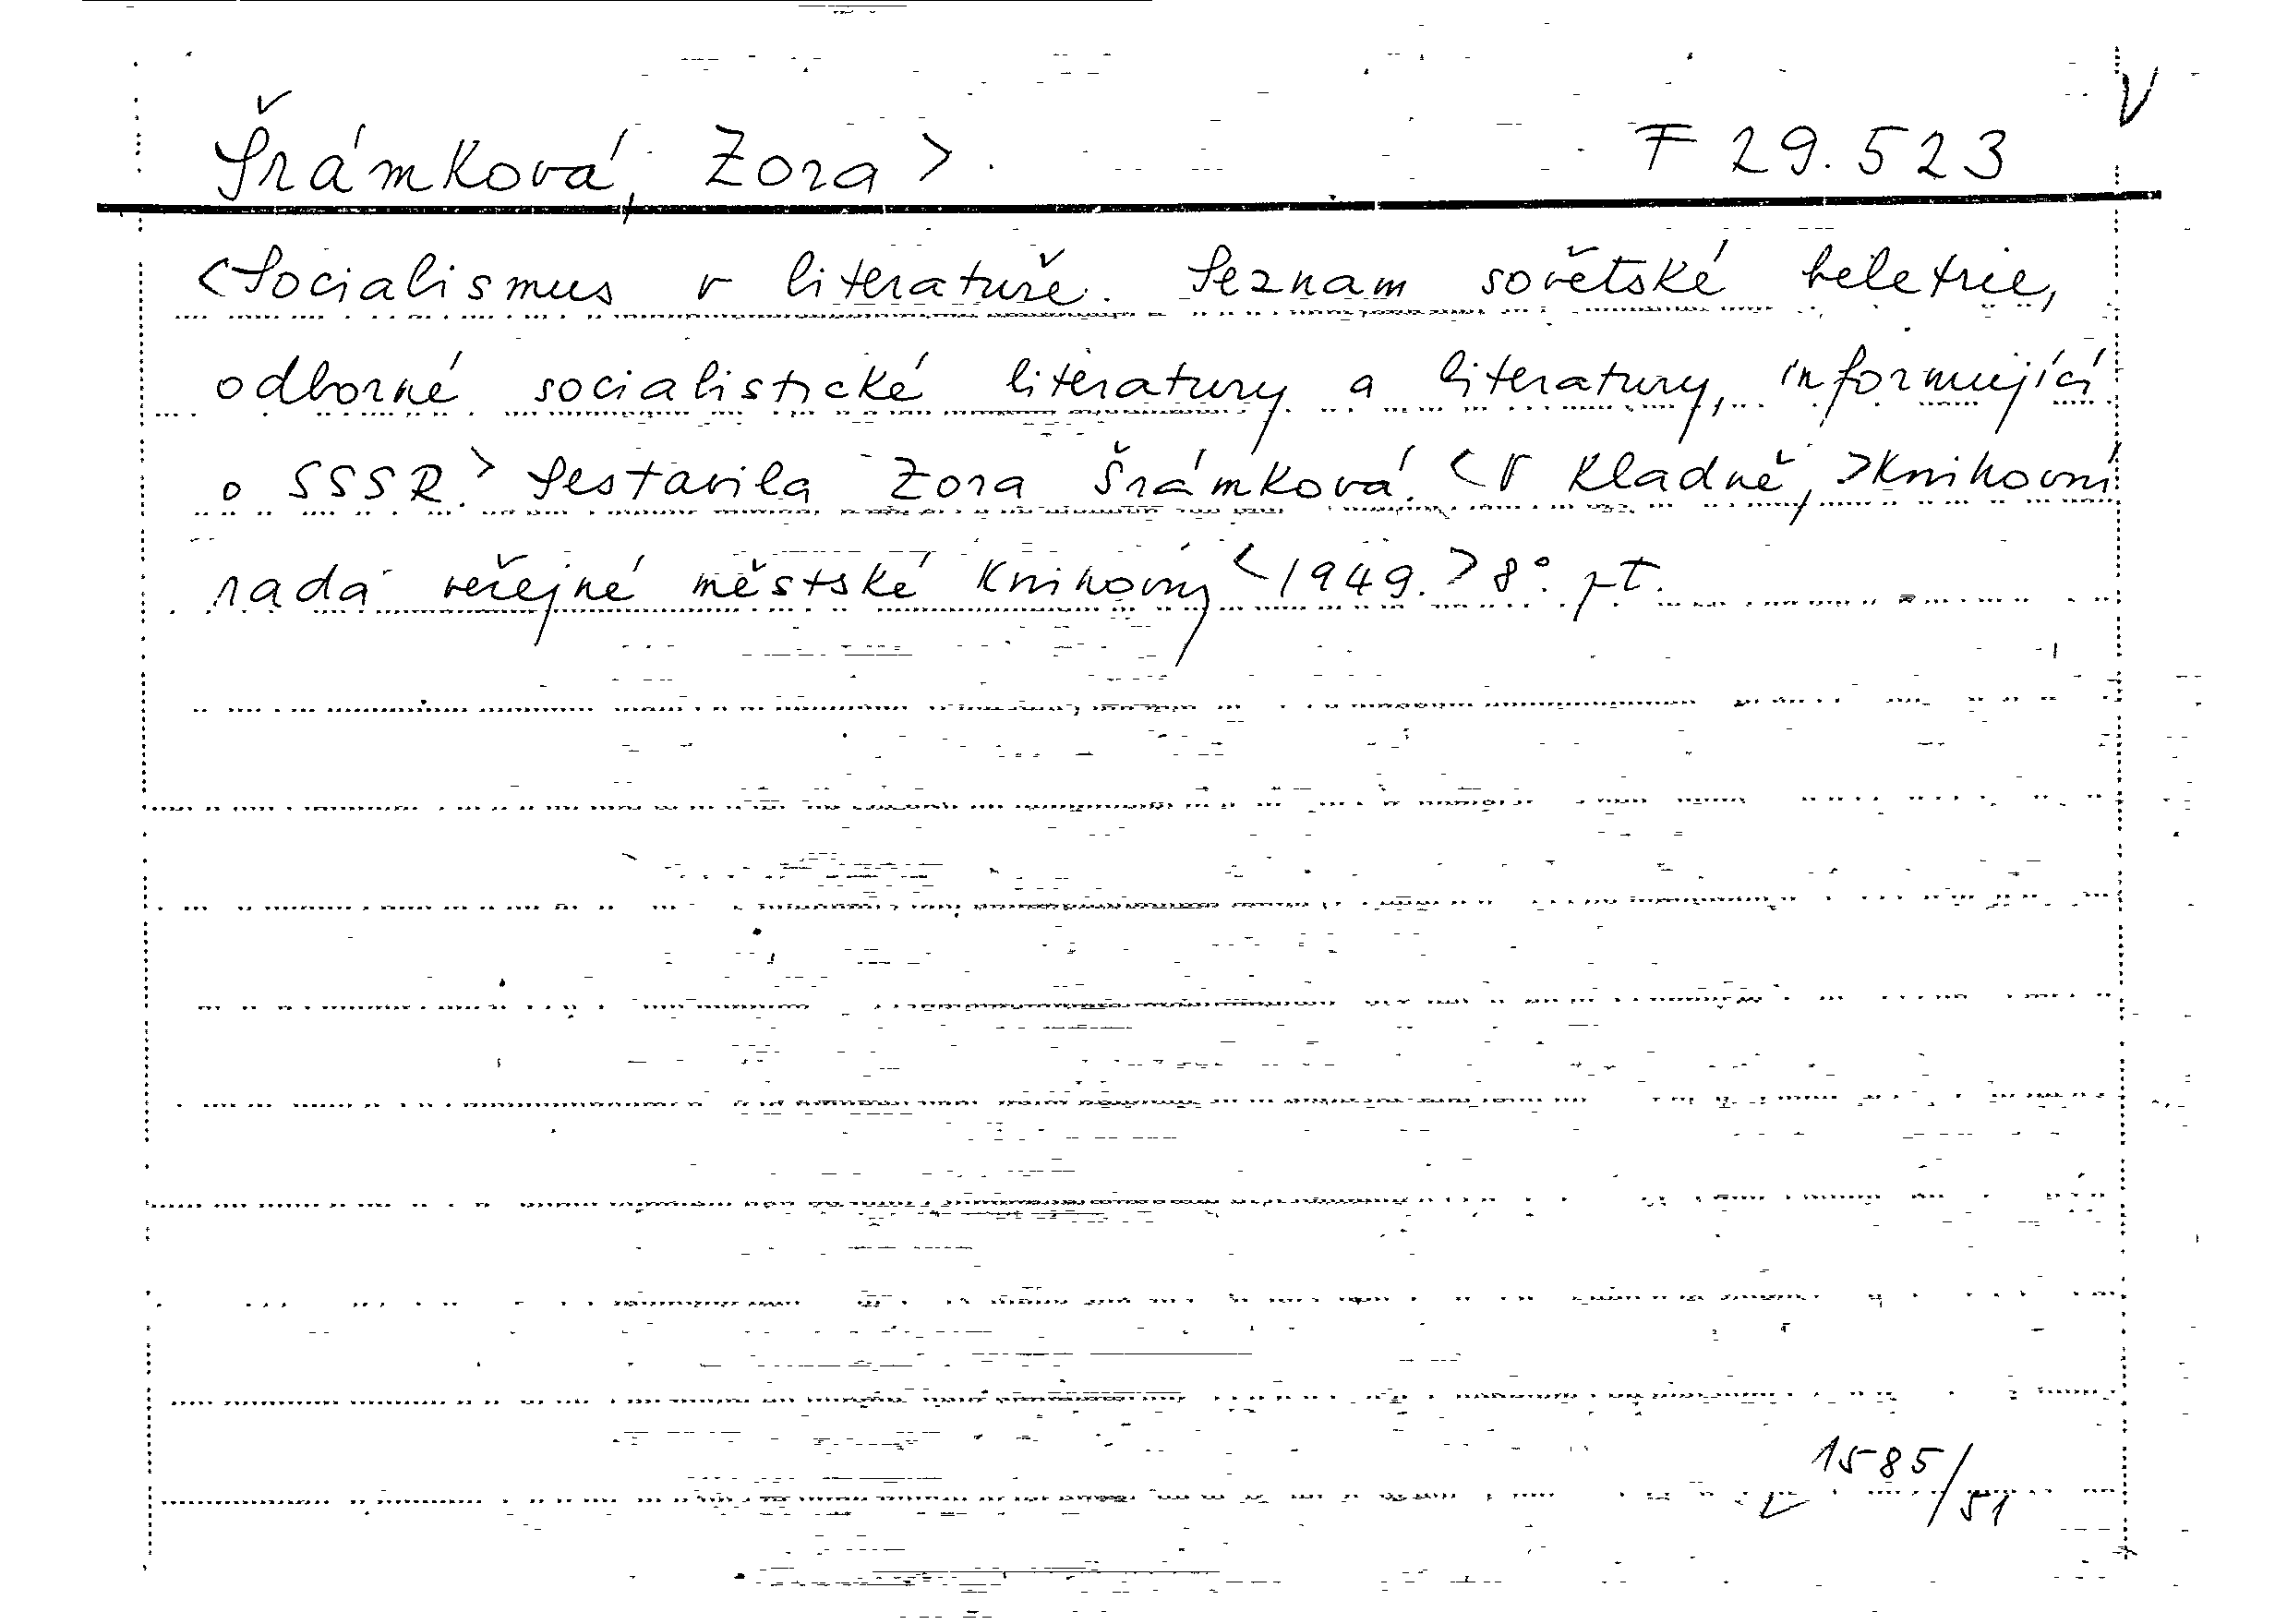 Šrámková, Zora > F 29.523 V
<Socialismus v literatuře. Seznam sovětské beletrie,
odborné socialistické literatury a literatury, informující
o SSSR.> Sestavila Zora Šrámková. <V Kladně, >Knihovní
rada veřejné městské knihovny <1949.> 8°. pt.
V 1585/51